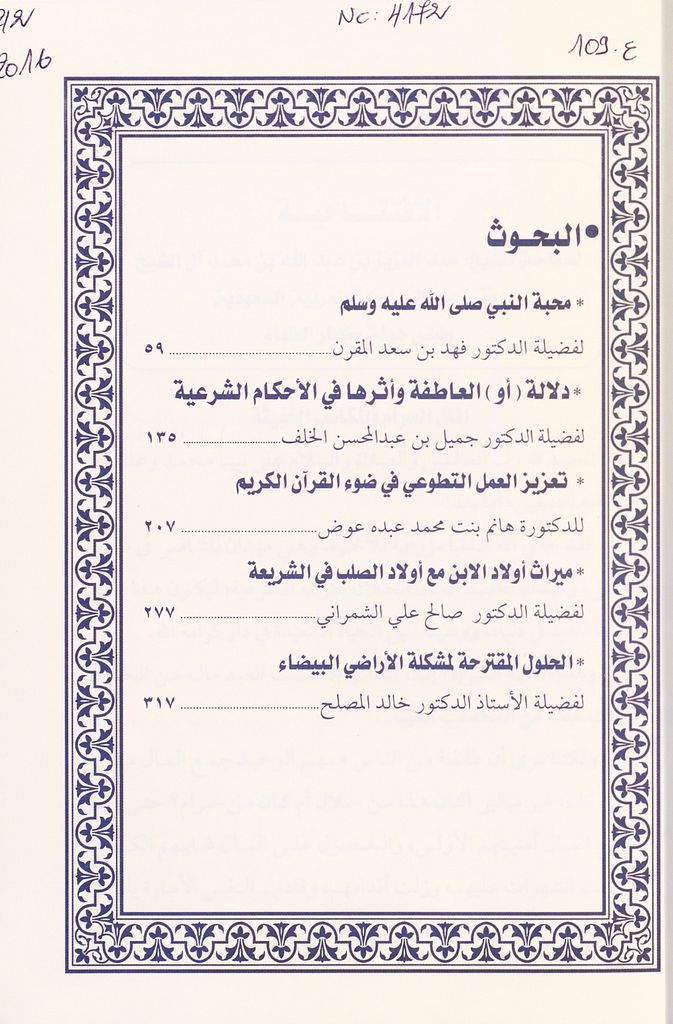 Nc: 4172
109.ع
2016
•البحوث
* محبة النبي صلى الله عليه وسلم
لفضيلة الدكتور فهد بن سعد المقرن ٥٩
* دلالة (أو) العاطفة وأثرها في الأحكام الشرعية
لفضيلة الدكتور جميل بن عبدالمحسن الخلف ١٣٥
* تعزيز العمل التطوعي في ضوء القرآن الكريم
للدكتورة هانم بنت محمد عبده عوض ٢٠٧
* ميراث أولاد الابن مع أولاد الصلب في الشريعة
لفضيلة الدكتور صالح علي الشمراني ٢٧٧
* الحلول المقترحة لمشكلة الأراضي البيضاء
لفضيلة الأستاذ الدكتور خالد المصلح ٣١٧